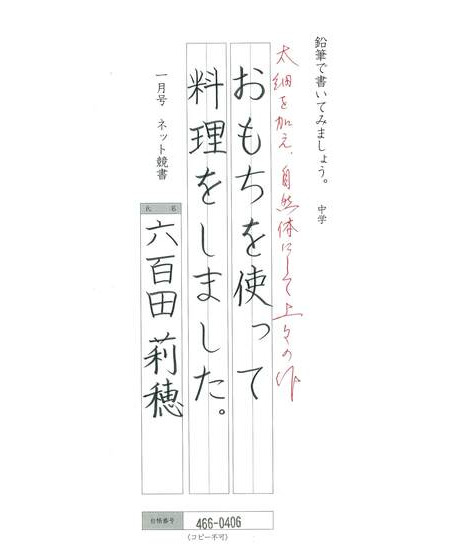 鉛筆で書いてみましょう。 中学
太細を加え、自然体にして上々の作
おもちを使って
料理をしました。
一月号 ネット競書
氏 名
六百田 莉穂
台帳番号 466-0406
(コピー不可)